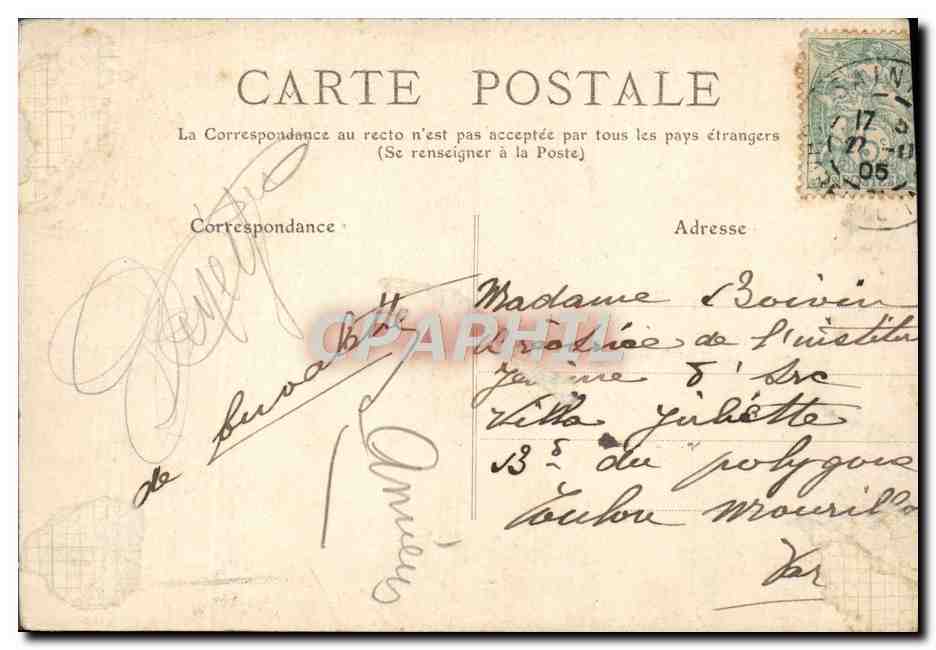 CARTE POSTALE
La Correspondance au recto n'est pas acceptée par tous les pays étrangers
(Se renseigner à la Poste)
Correspondance
Adresse
17
05
Madame Boivin
Directrice de l'institu
Jeanne d'Arc
Villa Juliette
Bd du polygone
Toulon Mourillo
Var
de
Amiens
CPAPHIL